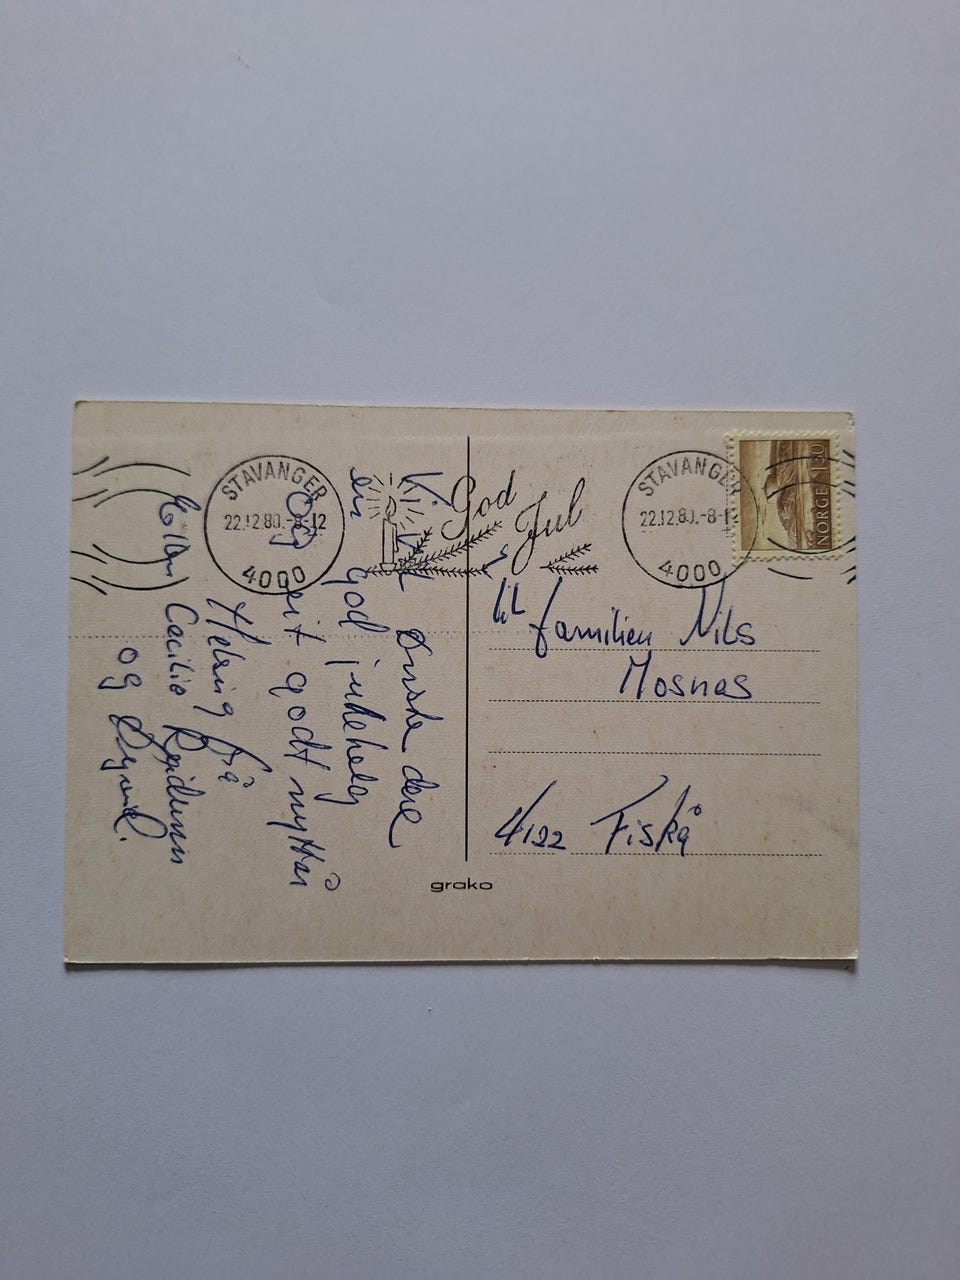 Vi vil ønske dere
ein god julehelg
og eit godt nyttår
Helsing frå
Ellen Cecilie Reidunn
og Øyvind.
STAVANGER
22.12.80.-8-12
4000
God
Jul
STAVANGER
22.12.80.-8-1
4000
NORGE 130
til familien Nils
Mosnes
4122 Fiskå
grako